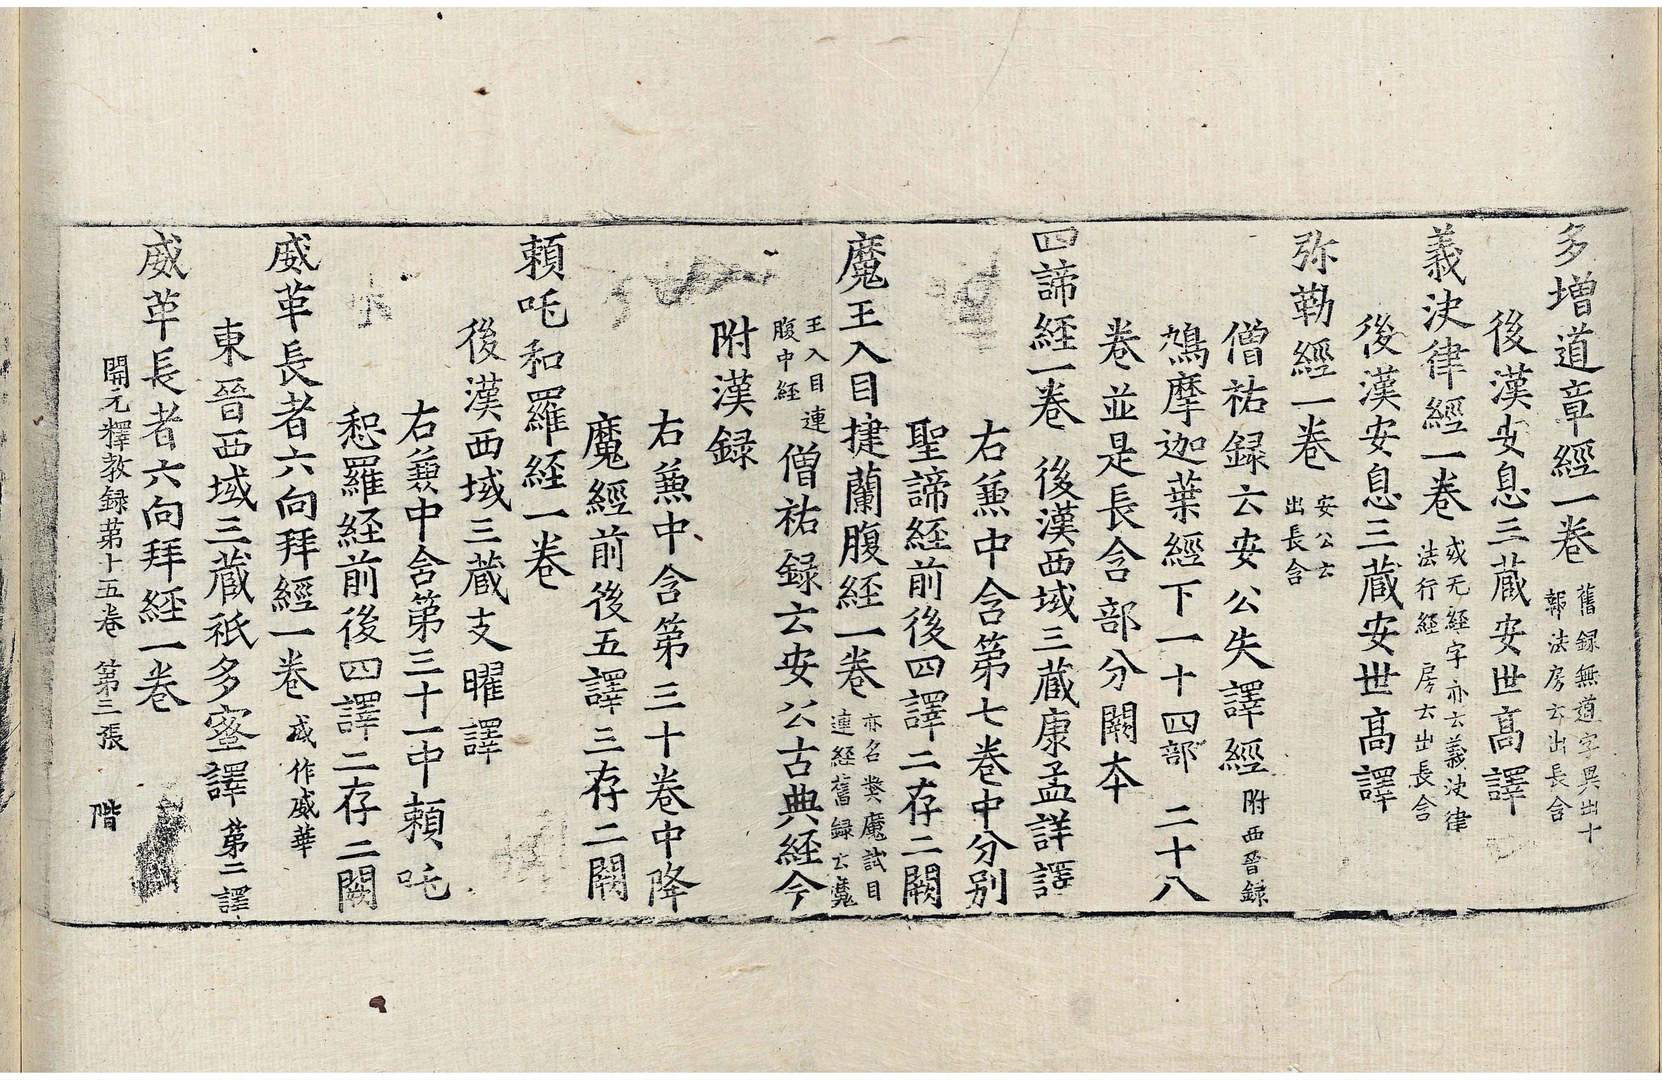 多增道章經一卷 舊録無道字異出十
報法房云出長含
後漢安息三藏安世髙譯
義决律經一卷 或无經字亦云義决律
法行經 房云出長含
後漢安息三藏安世髙譯
弥勒經一卷 安公云
出長含
僧祐録云安公失譯經 附西晉録
鴆摩迦葉經下一十四部 二十八
卷並是長含部分闕本
四諦経一卷 後漢西域三藏康孟詳譯
右蕪中含第七卷中分别
聖諦経前後四譯二存二闕
魔王入目揵蘭腹經一卷 亦名弊魔試目
連經舊録云魔
王入目連
腹中経
僧祐録云安公古典経今
附漢録
右蕪中含第三十卷中降
魔經前後五譯三存二闕
賴吒和羅経一卷
後漢西域三藏支曜譯
右蕪中含第三十一中賴吒
惒羅経前後四譯二存二闕
威革長者六向拜經一卷 或作威華
東晉西域三藏祇多蜜譯 第二譯
威革長者六向拜経一卷
開元釋教録第十五卷 第三張 階